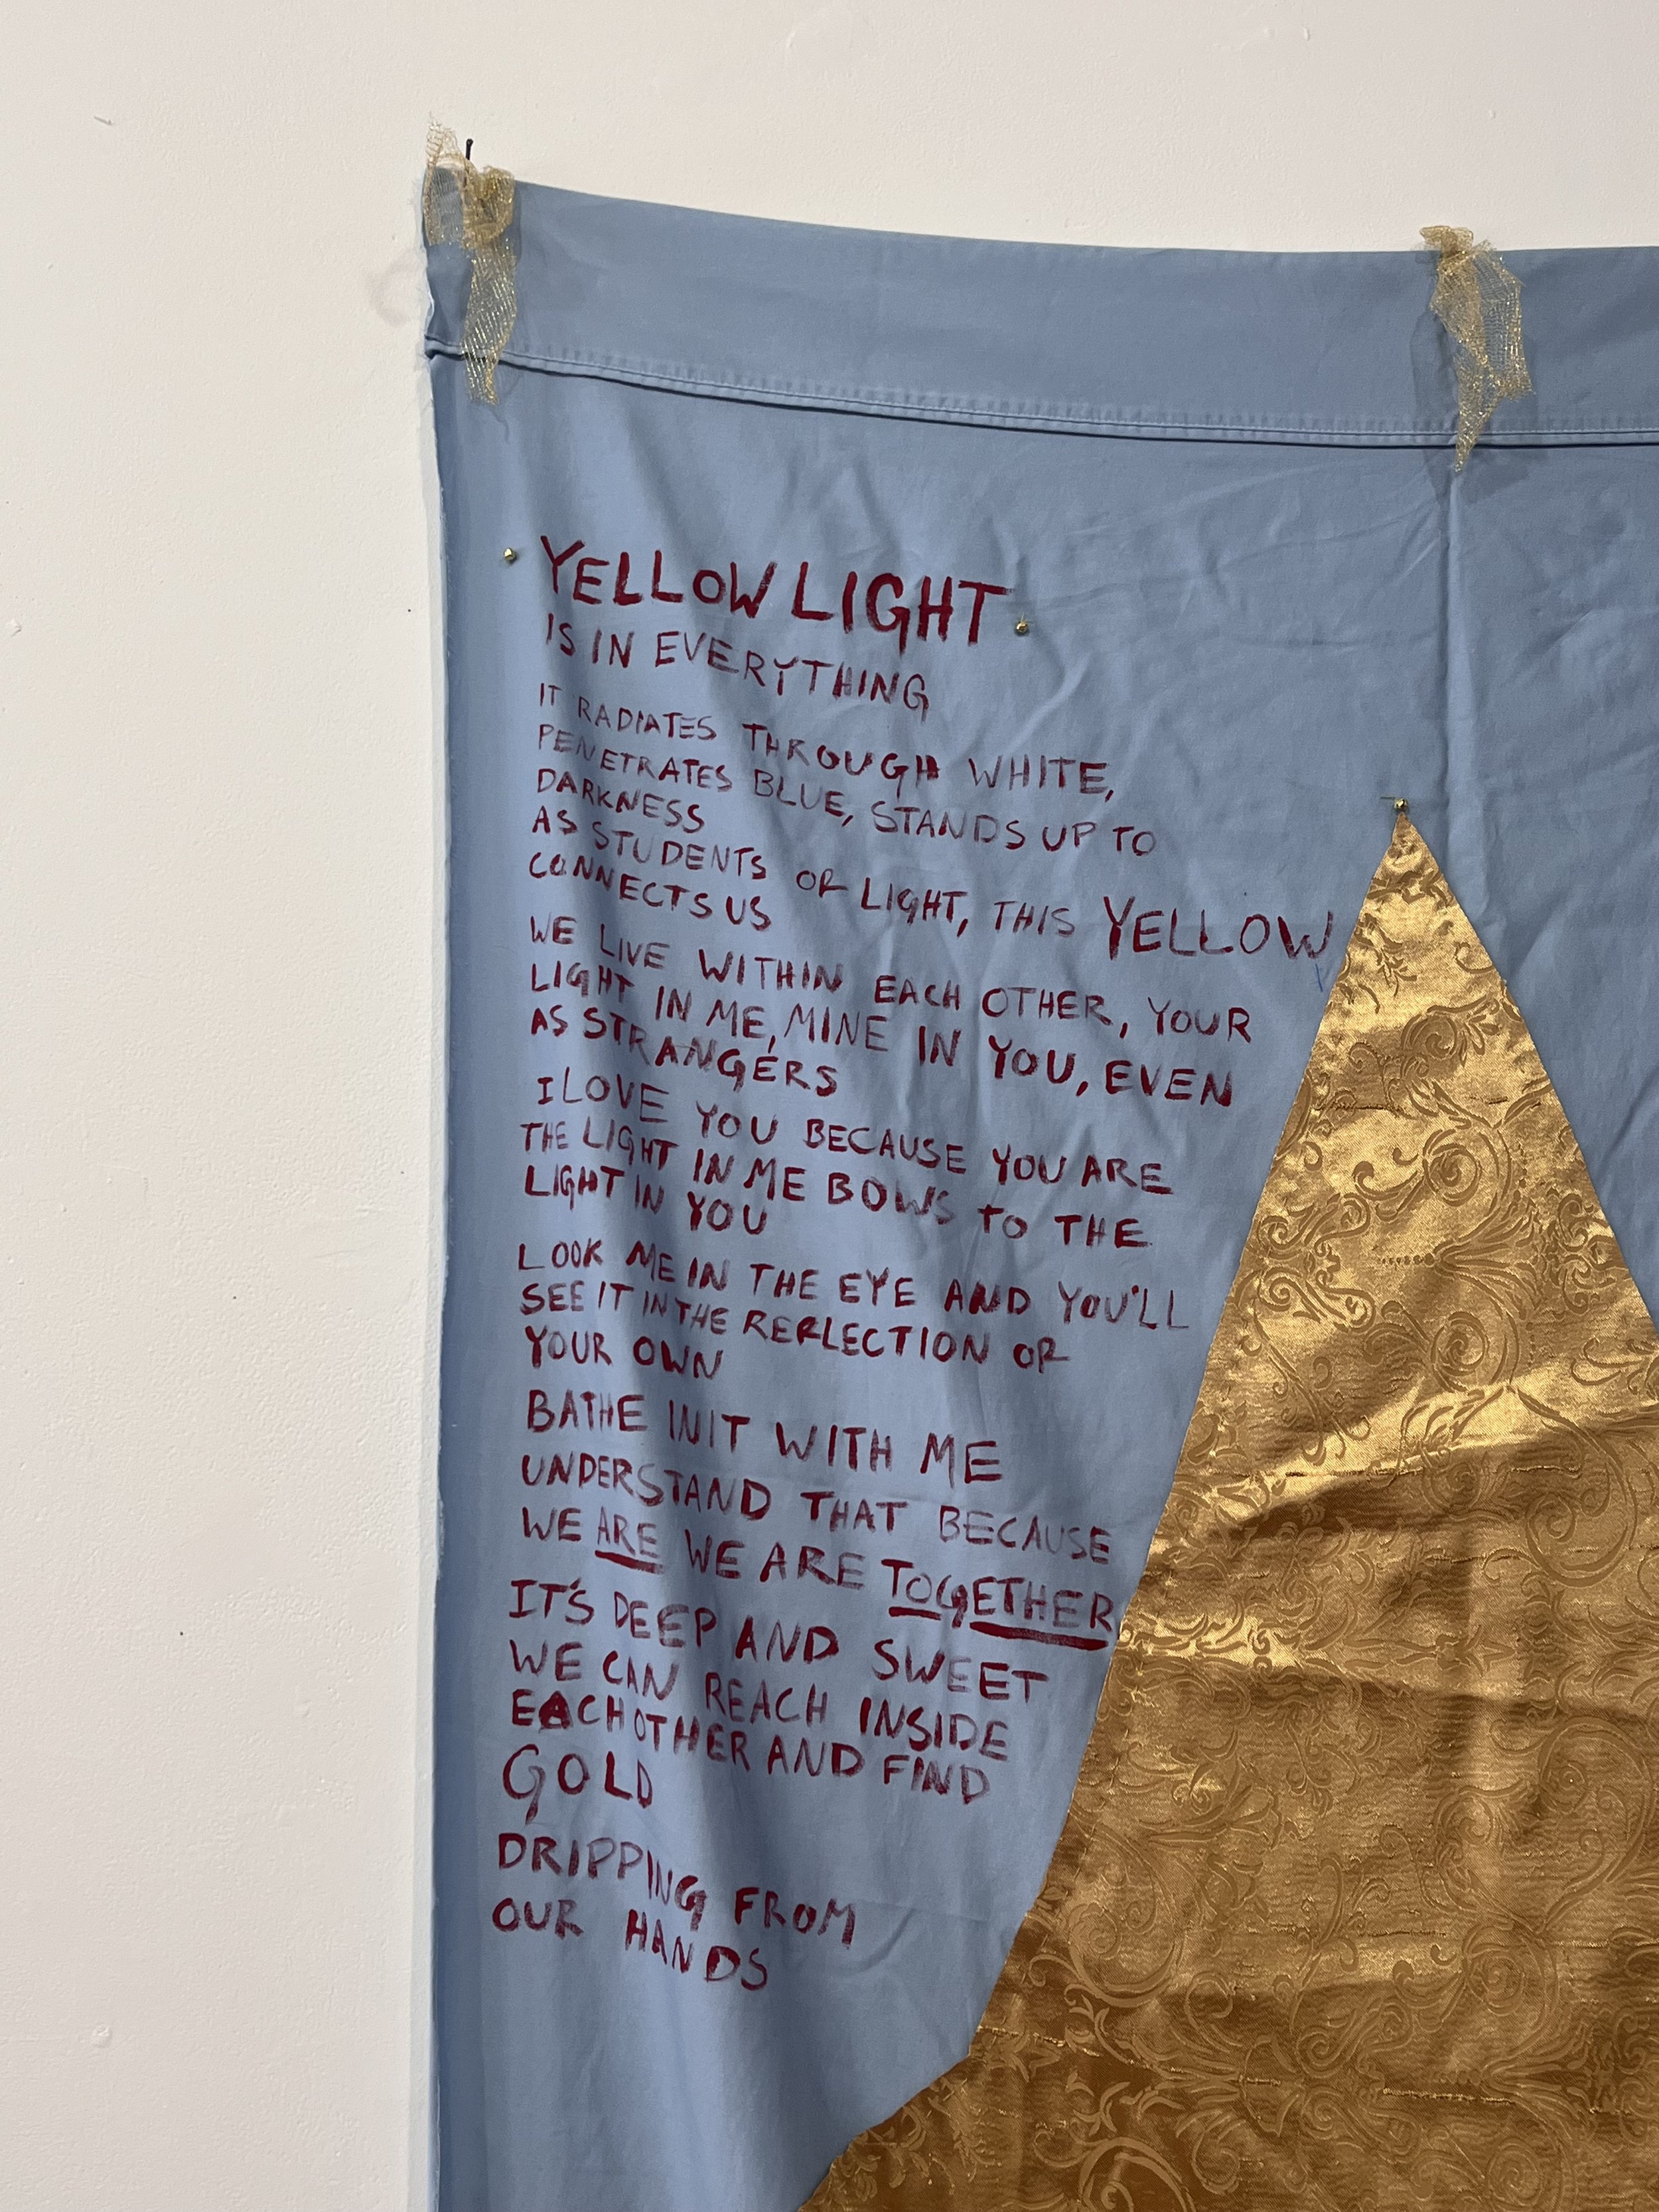 YELLOW LIGHT
IS IN EVERYTHING
IT RADIATES THROUGH WHITE,
PENETRATES BLUE, STANDS UP TO
DARKNESS
AS STUDENTS OF LIGHT, THIS YELLOW
CONNECTS US
WE LIVE WITHIN EACH OTHER, YOUR
LIGHT IN ME, MINE IN YOU, EVEN
AS STRANGERS
I LOVE YOU BECAUSE YOU ARE
THE LIGHT IN ME BOWS TO THE
LIGHT IN YOU
LOOK ME IN THE EYE AND YOU'LL
SEE IT IN THE REFLECTION OF
YOUR OWN
BATHE IN IT WITH ME
UNDERSTAND THAT BECAUSE
WE ARE WE ARE TOGETHER
IT'S DEEP AND SWEET
WE CAN REACH INSIDE
EACH OTHER AND FIND
GOLD
DRIPPING FROM
OUR HANDS